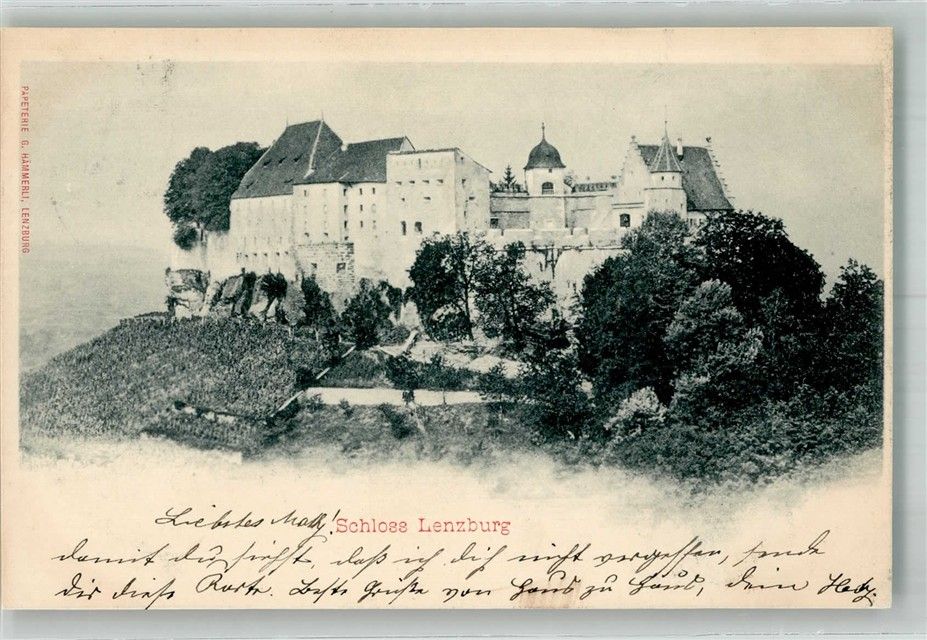 PAPETERIE G. HÄMMERLI, LENZBURG
Schloss Lenzburg
Liebstes
damit du siehst, daß ich dich nicht vergessen, sende
dir diese Karte. Beste Grüße von Haus zu Haus, dein